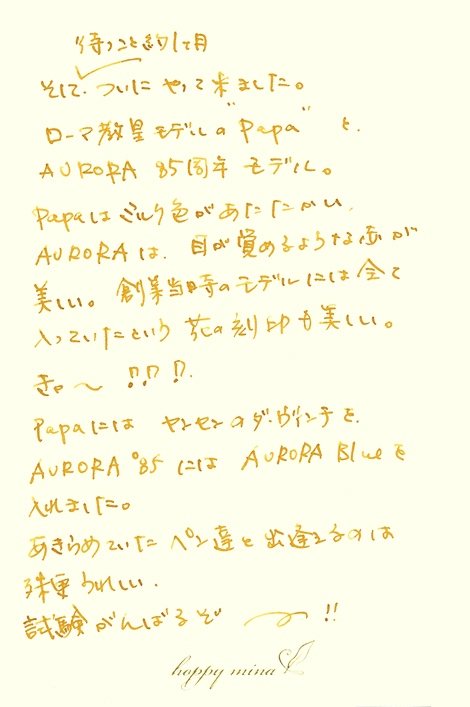 待つこと約1ヶ月
そして、ついにやって来ました。
ローマ教皇モデルの"Papa"と、
AURORA 85周年モデル。
Papaはミルク色があたたかい、
AURORAは、目が覚めるような赤が
美しい。創業当時のモデルには全て
入っていたという花の刻印も美しい。
きゃ〜!!?!?.
Papaには ヤンセンのダ・ヴィンチを、
AURORA '85 には AURORA Blueを
入れました。
あきらめていたペン達と出逢えるのは
殊更うれしい。
試験がんばるぞ 〜!!
happy mina